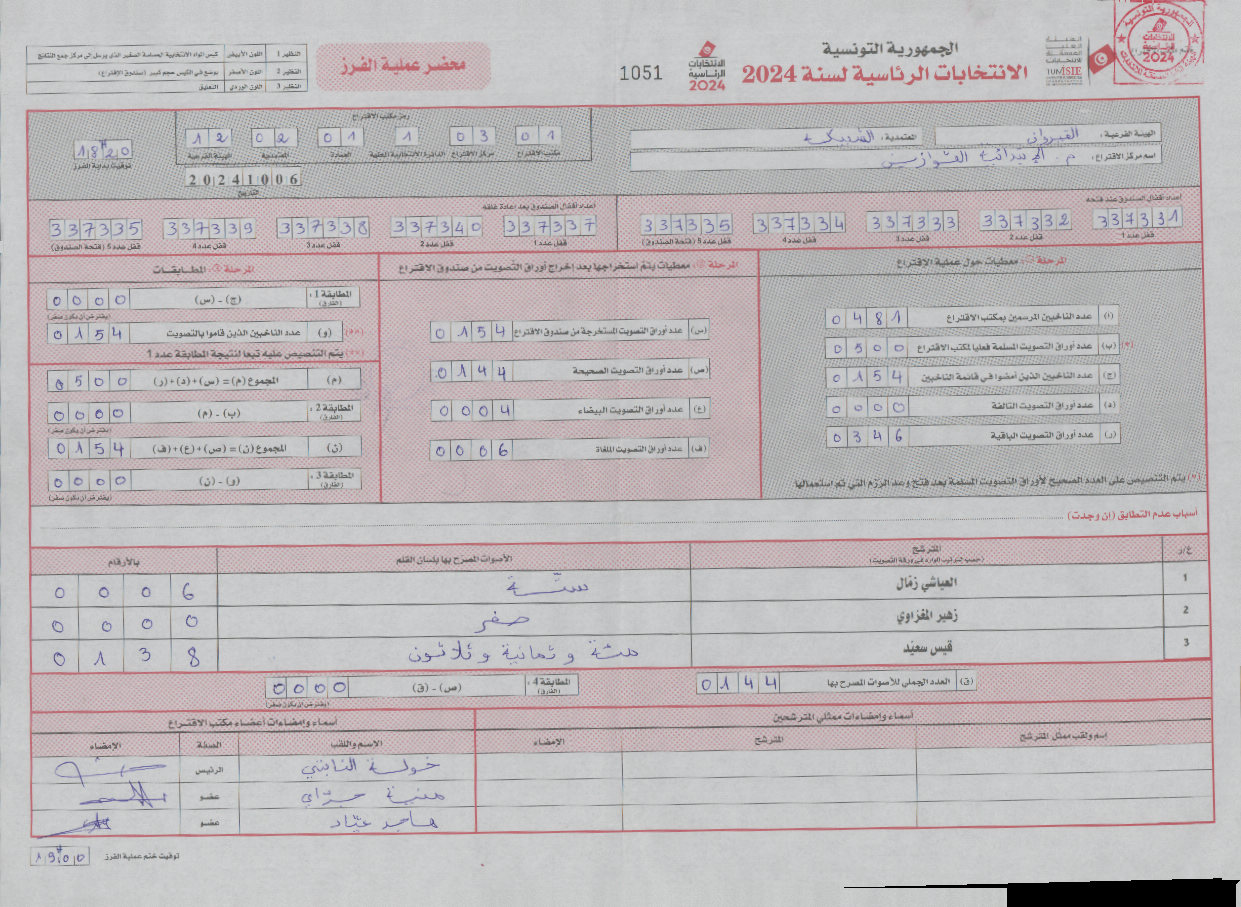 الجمهورية التونسية
الانتخابات الرئاسية لسنة 2024
الانتخابات الرئاسية 2024
1051
محضر عملية الفرز
النظير 1 اللون الأبيض
النظير 2 اللون الأصفر يوضع في الكيس حجم كبير (صندوق الاقتراع)
النظير 3 اللون الوردي التعليق
الهيئة الفرعية : القيروان المعتمدية : الشبيكة
اسم مركز الاقتراع : م. الإبتدائية
رمز مكتب الاقتراع
01 03 1 01 02 12
مكتب الاقتراع مركز الاقتراع الدائرة الانتخابية المحلية العمادة المعتمدية الهيئة الفرعية
20241006
التاريخ
18H20
توقيت بداية الفرز
أعداد أقفال الصندوق عند فتحه
337331 337332 337333 337334 337335
قفل عدد 1 قفل عدد 2 قفل عدد 3 قفل عدد 4 قفل عدد 5 (فتحة الصندوق)
أعداد أقفال الصندوق بعد إعادة غلقه
337337 337340 337338 337339 337335
قفل عدد 1 قفل عدد 2 قفل عدد 3 قفل عدد 4 قفل عدد 5 (فتحة الصندوق)
المرحلة 1: معطيات حول عملية الاقتراع
(أ) عدد الناخبين المرسمين بمكتب الاقتراع 0481
(*) (ب) عدد أوراق التصويت المسلمة فعليا لمكتب الاقتراع 0500
(ج) عدد الناخبين الذين أمضوا في قائمة الناخبين 0154
(د) عدد أوراق التصويت التالفة 0000
(ر) عدد أوراق التصويت الباقية 0346
(*) يتم التنصيص على العدد الصحيح لأوراق التصويت المسلمة بعد فتح وعد الرزم التي تم استعمالها
المرحلة 2: معطيات يتم استخراجها بعد إخراج أوراق التصويت من صندوق الاقتراع
(س) عدد أوراق التصويت المستخرجة من صندوق الاقتراع 0154
(ص) عدد أوراق التصويت الصحيحة 0144
(ع) عدد أوراق التصويت البيضاء 0004
(ف) عدد أوراق التصويت الملغاة 0006
المرحلة 3: المطابقات
المطابقة 1 : (الفارق) (ج) - (س) 0000
(يفترض أن يكون صفر)
(**) (و) عدد الناخبين الذين قاموا بالتصويت 0154
(**) يتم التنصيص عليه تبعا لنتيجة المطابقة عدد 1
(م) المجموع (م) = (س)+(د)+(ر) 0500
المطابقة 2 : (الفارق) (ب) - (م) 0000
(يفترض أن يكون صفر)
(ن) المجموع (ن) = (ص)+(ع)+(ف) 0154
المطابقة 3 : (الفارق) (و) - (ن) 0000
(يفترض أن يكون صفر)
أسباب عدم التطابق (إن وجدت)
ع/ر المترشح الأصوات المصرح بها بلسان القلم بالأرقام
(حسب الترتيب الوارد في ورقة التصويت)
1 العياشي زمّال ستّة 0006
2 زهير المغزاوي صفر 0000
3 قيس سعيّد مئة و ثمانية و ثلاثون 0138
(ق) العدد الجملي للأصوات المصرح بها 0144
المطابقة 4 : (الفارق) (ص) - (ق) 0000
(يفترض أن يكون صفر)
أسماء وإمضاءات ممثلي المترشحين
إسم ولقب ممثل المترشح المترشح الإمضاء
أسماء وإمضاءات أعضاء مكتب الاقتراع
الإسم واللقب الصفة الإمضاء
خولة الرئيس
عضو
عضو
19H00 توقيت ختم عملية الفرز